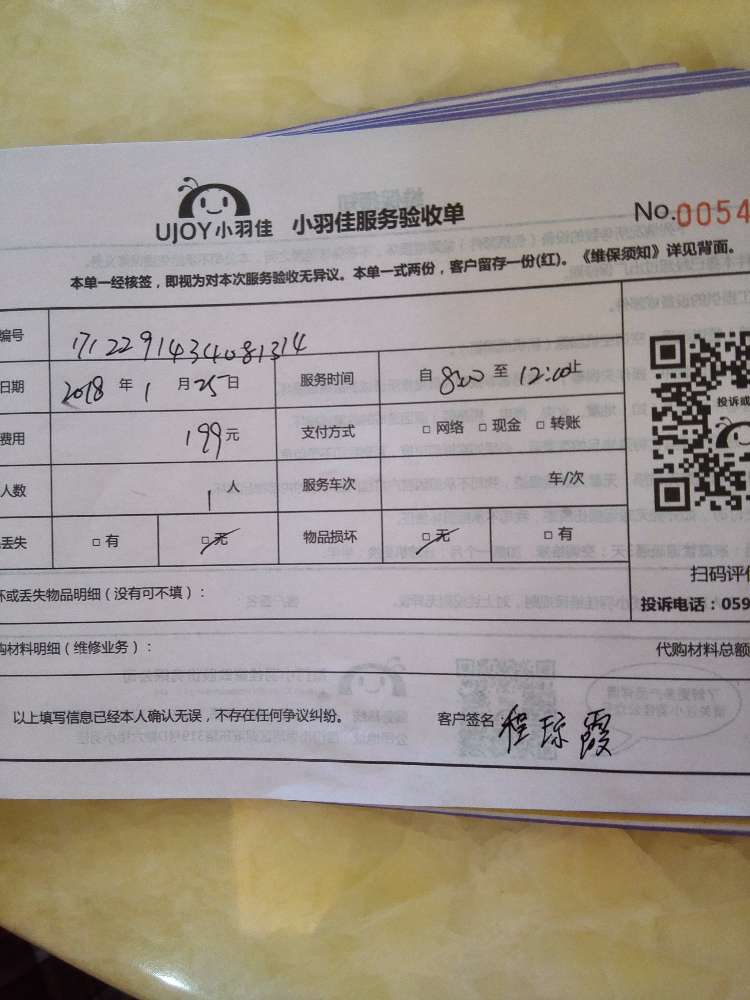 UJOY小羽佳 小羽佳服务验收单 No.0054
本单一经核签，即视为对本次服务验收无异议。本单一式两份，客户留存一份(红)。《维保须知》详见背面。
编号 1712291434081314
日期 2018 年 1 月 25 日 服务时间 自 8:00 至 12:00止
费用 199元 支付方式 □ 网络 □ 现金 □ 转账
人数 1 人 服务车次 车/次
丢失 □ 有 □ 无 物品损坏 □ 无 □ 有
坏或丢失物品明细（没有可不填）：
购材料明细（维修业务）： 代购材料总额
以上填写信息已经本人确认无误，不存在任何争议纠纷。 客户签名 程琼霞
投诉或
扫码评价
投诉电话：059